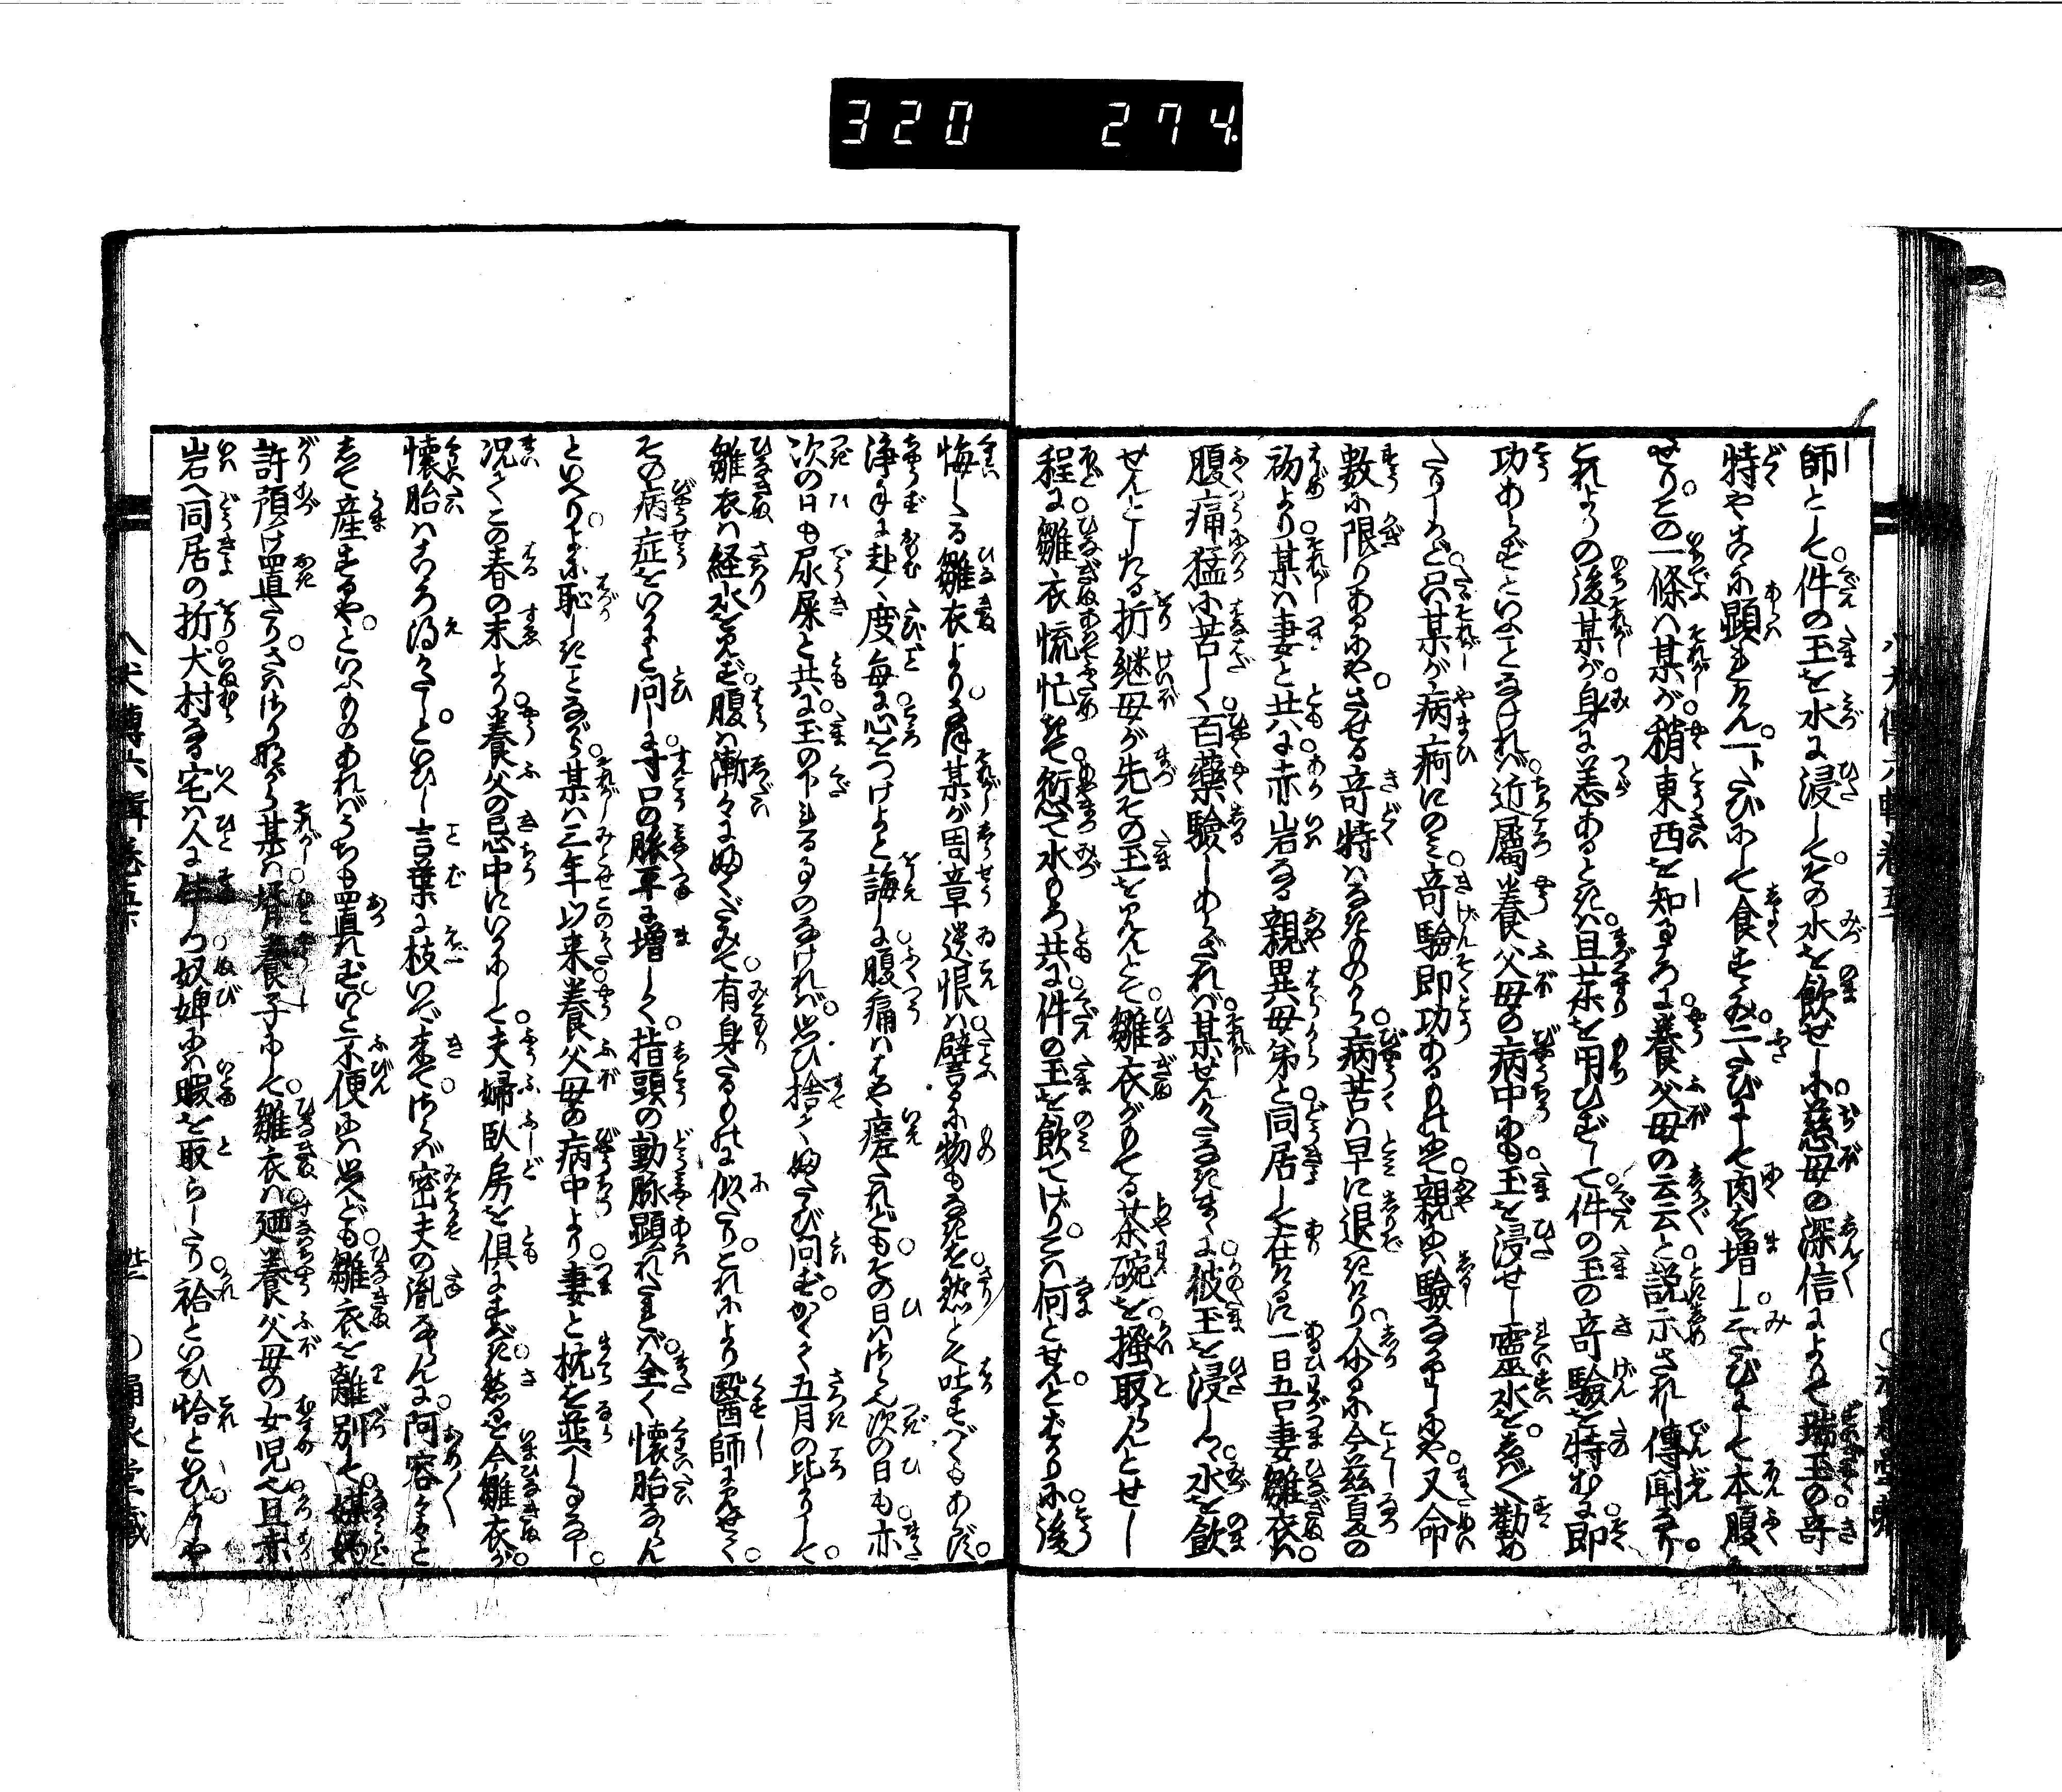 320 274
師として。件の玉を水に浸して。その水を飲せしに。慈母の深信によりて瑞玉の。奇
特やさらに顕れけん。一トたびにして食すゝみ。二たびにして肉を増し。三たびにして本腹
せり。この一條は某が。稍東西を知るころに。養父母の云云と説示されし傳聞なり。
これよりの後某が。身に恙あるときは。且茶を用ひずして。件の玉の奇驗を特むに即
功あらずといふことなければ。近屬養父母の病中にも。玉を浸せし靈水を。しばしば勸め
たりしかど。只某が病痾にのみ。奇驗即功あるものにて。親には驗なかりしにや。又命
數に限りあるにや。させる奇特はなきものから。病苦は早に退きにけり。介るに今茲夏の
初より某は妻と共に。赤岩なる親異母弟と。同居して在けるに一日吾妻雛衣は。
腹痛猛に苦しく。百藥驗しあらざれば。某せんかたなきまゝに。彼玉を浸しつゝ。水を飲
せんとしたる折。継母が先その玉を見んとて。雛衣がもてる茶碗を。掻取らんとせし
程に。雛衣慌忙きて。愆て水もろ共に。件の玉を飲てけり。こは何とせんとばかりに。後
悔したる雛衣より。猶某が周章遺恨は。譬るに物もなきを。然とて吐すべくもあらず。
淨手に赴く度毎に。心をつけよと誨しに。腹痛ははや瘥たれども。その日はさらなり次の日も。亦
次の日も尿屎と共に。玉の下れることのなければ。思ひ捨て。ふたゝび問ず。かくて五月の比よりして。
雛衣は経水を見ず。腹は漸々にふくだみて。有身たるものに似たり。これにより醫師に見せて。
その病症をいかにと問しに。寸口の脉平に増して。指頭の動脉顕れたれば。全く懐胎ならん
といへり。よに恥しきことながら。某は三年以来。養父母の病中より。妻と枕を並べしことなし。
況てこの春の末より。養父の忌中にいかにして。夫婦臥房を倶にすべき。然るを今雛衣が。
懐胎はこゝろ得がたし。といひし言葉に枝いで来て。さらば密夫の胤ならんに。阿容々々と
して産するや。といふものあればうちも置れず。いと不便には思へども。雛衣を離別して。媒妁
許預け置たり。さはさりながら某は。壻養子にして。雛衣は。廼養父母の女児也。且赤
岩へ同居の折。犬村なる宅は人に借しつ。奴婢には暇を取らしたり。袷といひ恰といひ。よりや
八犬傳六輯巻五下
○涌泉堂藏